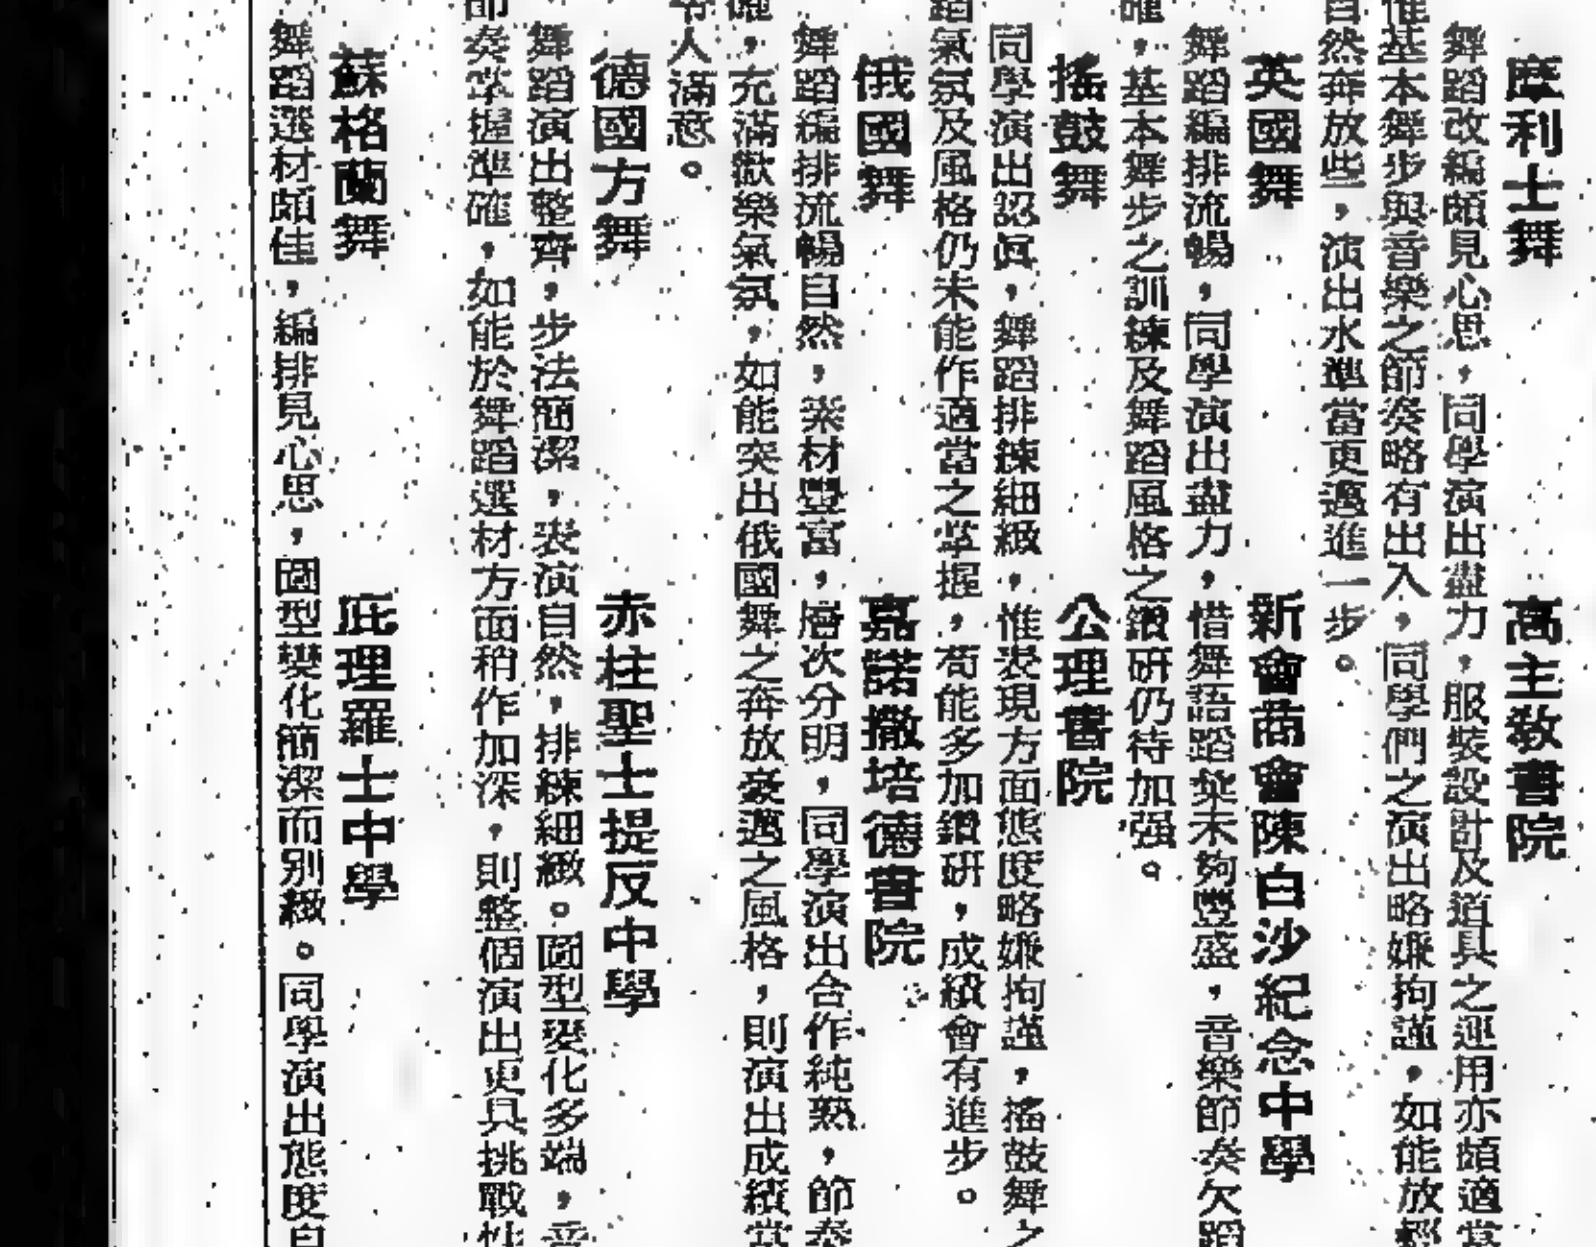 摩利士舞 高主教書院
舞蹈改編頗見心思，同學演出盡力，服裝設計及道具之運用亦頗適當
惟基本舞步與音樂之節奏略有出入，同學們之演出略嫌拘謹，如能放輕
自然奔放些，演出水準當更邁進一步。
英國舞 新會商會陳白沙紀念中學
舞蹈編排流暢，同學演出盡力，惜舞語蹈彙未夠豐盛，音樂節奏欠蹈
確，基本舞步之訓練及舞蹈風格之鑽研仍待加强。
搖鼓舞 公理書院
同學演出認眞，舞蹈排鍊細緻，惟表現方面態度略嫌拘謹，搖鼓舞之
蹈氣氛及風格仍未能作適當之掌握，苟能多加鑽研，成績會有進步。
俄國舞 嘉諾撒培德書院
舞蹈編排流暢自然，素材豐富，層次分明，同學演出合作純熟，節奏
確，充滿歡樂氣氛，如能突出俄國舞之奔放豪邁之風格，則演出成績當
令人滿意。
德國方舞 赤柱聖士提反中學
舞蹈演出整齊，步法簡潔，表演自然，排練細緻。圖型變化多端，音
節奏掌握準確，如能於舞蹈選材方面稍作加深，則整個演出更具挑戰性
蘇格蘭舞 庇理羅士中學
舞蹈選材頗佳，編排見心思，圖型變化簡潔而別緻。同學演出態度自